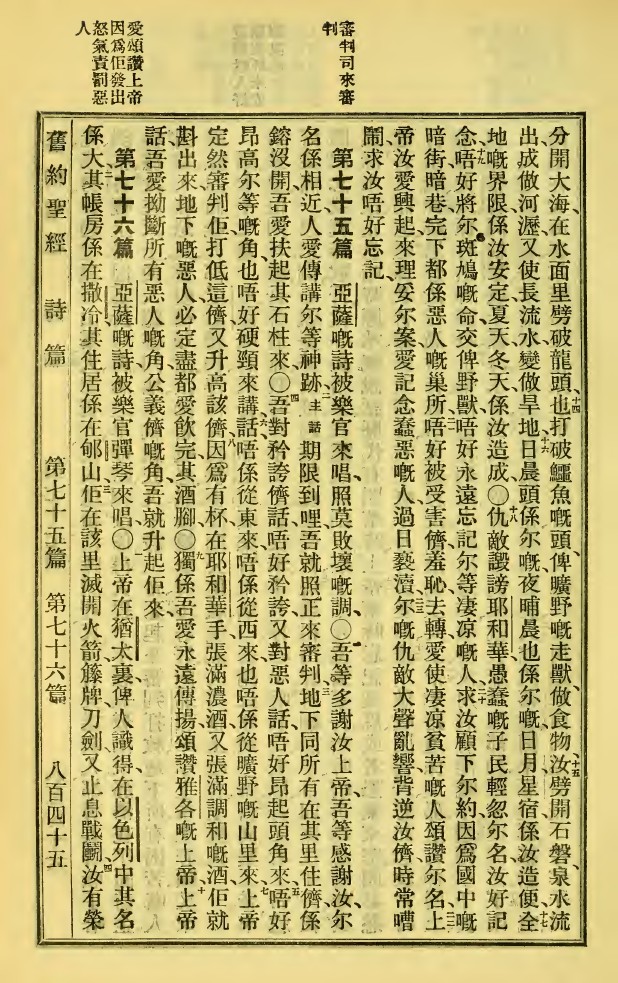 審判司來審
判
愛頌讚上帝
因爲佢發出
怒氣責罰惡
人
分開大海在水面里劈破龍頭也十四打破鱷魚嘅頭俾曠野嘅走獸做食物十五汝劈開石磐泉水流
出成做河瀝又使長流水變做旱地十六日晨頭係尔嘅夜晡晨也係尔嘅日月星宿係汝造便十七全
地嘅界限係汝安定夏天冬天係汝造成〇十八仇敵譭謗耶和華愚蠢嘅子民輕忽尔名汝好記
念十九唔好將尔斑鳩嘅命交俾野獸唔好永遠忘記尔等凄凉嘅人二十求汝顧下尔約因爲國中嘅
暗街暗巷完下都係惡人嘅巢所二一唔好被受害儕羞恥去轉愛使凄凉貧苦嘅人頌讚尔名二二上
帝汝愛興起來理妥尔案愛記念蠢惡嘅人過日褻瀆尔二三嘅仇敵大聲亂響背逆汝儕時常嘈
鬧求汝唔好忘記
第七十五篇 亞薩嘅詩被樂官來唱照莫敗壞嘅調〇一吾等多謝汝上帝吾等感謝汝尔
名係相近人愛傳講尔等神跡二主話期限到哩吾就照正來審判三地下同所有在其里住儕係
鎔沒開吾愛扶起其石柱來〇四吾對矜誇儕話唔好矜誇又對惡人話唔好昂起頭角來五唔好
昂高尔等嘅角也唔好硬頸來講話六唔係從東來唔係從西來也唔係從曠野嘅山里來七上帝
定然審判佢打低這儕又升高該儕八因爲有杯在耶和華手張滿濃酒又張滿調和嘅酒佢就
斟出來地下嘅惡人必定盡都愛飲完其酒腳〇九獨係吾愛永遠傳揚頌讚雅各嘅上帝十上帝
話吾愛拗斷所有惡人嘅角公義儕嘅角吾就升起佢來
第七十六篇 亞薩嘅詩被樂官彈琴來唱〇一上帝在猶太裏俾人識得在以色列中其名
係大二其帳房係在撒冷其住居係在郇山三佢在該里滅開火箭籐牌刀劍又止息戰鬭四汝有榮
舊約聖經 詩篇 第七十五篇 第七十六篇 八百四十五